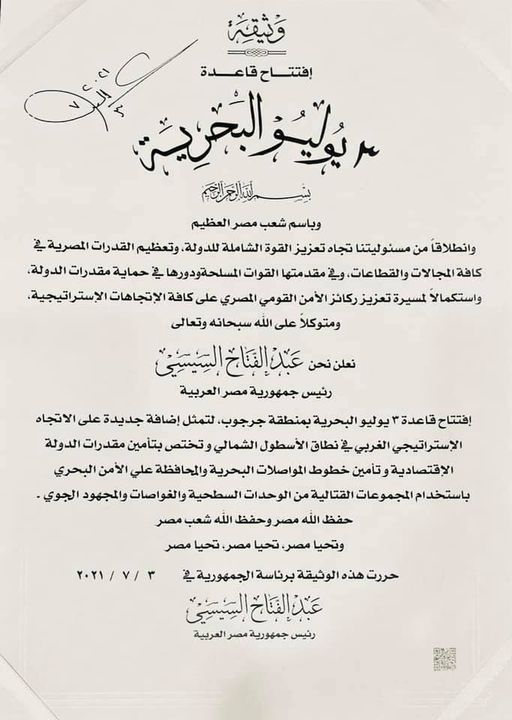 وثيقة
إفتتاح قاعدة
٣ يوليو البحرية
بسم الله الرحمن الرحيم
وباسم شعب مصر العظيم
وانطلاقاً من مسئوليتنا تجاه تعزيز القوة الشاملة للدولة، وتعظيم القدرات المصرية في
كافة المجالات والقطاعات، وفي مقدمتها القوات المسلحة ودورها في حماية مقدرات الدولة،
واستكمالاً لمسيرة تعزيز ركائز الأمن القومي المصري على كافة الإتجاهات الإستراتيجية،
ومتوكلاً على الله سبحانه وتعالى
نعلن نحن عبد الفتاح السيسي
رئيس جمهورية مصر العربية
إفتتاح قاعدة ٣ يوليو البحرية بمنطقة جرجوب، لتمثل إضافة جديدة على الاتجاه
الإستراتيجي الغربي في نطاق الأسطول الشمالي و تختص بتأمين مقدرات الدولة
الإقتصادية و تأمين خطوط المواصلات البحرية والمحافظة علي الأمن البحري
باستخدام المجموعات القتالية من الوحدات السطحية والغواصات والمجهود الجوي .
حفظ الله مصر وحفظ الله شعب مصر
وتحيا مصر، تحيا مصر، تحيا مصر
حررت هذه الوثيقة برئاسة الجمهورية في ٣ / ٧ / ٢٠٢١
عبد الفتاح السيسي
رئيس جمهورية مصر العربية